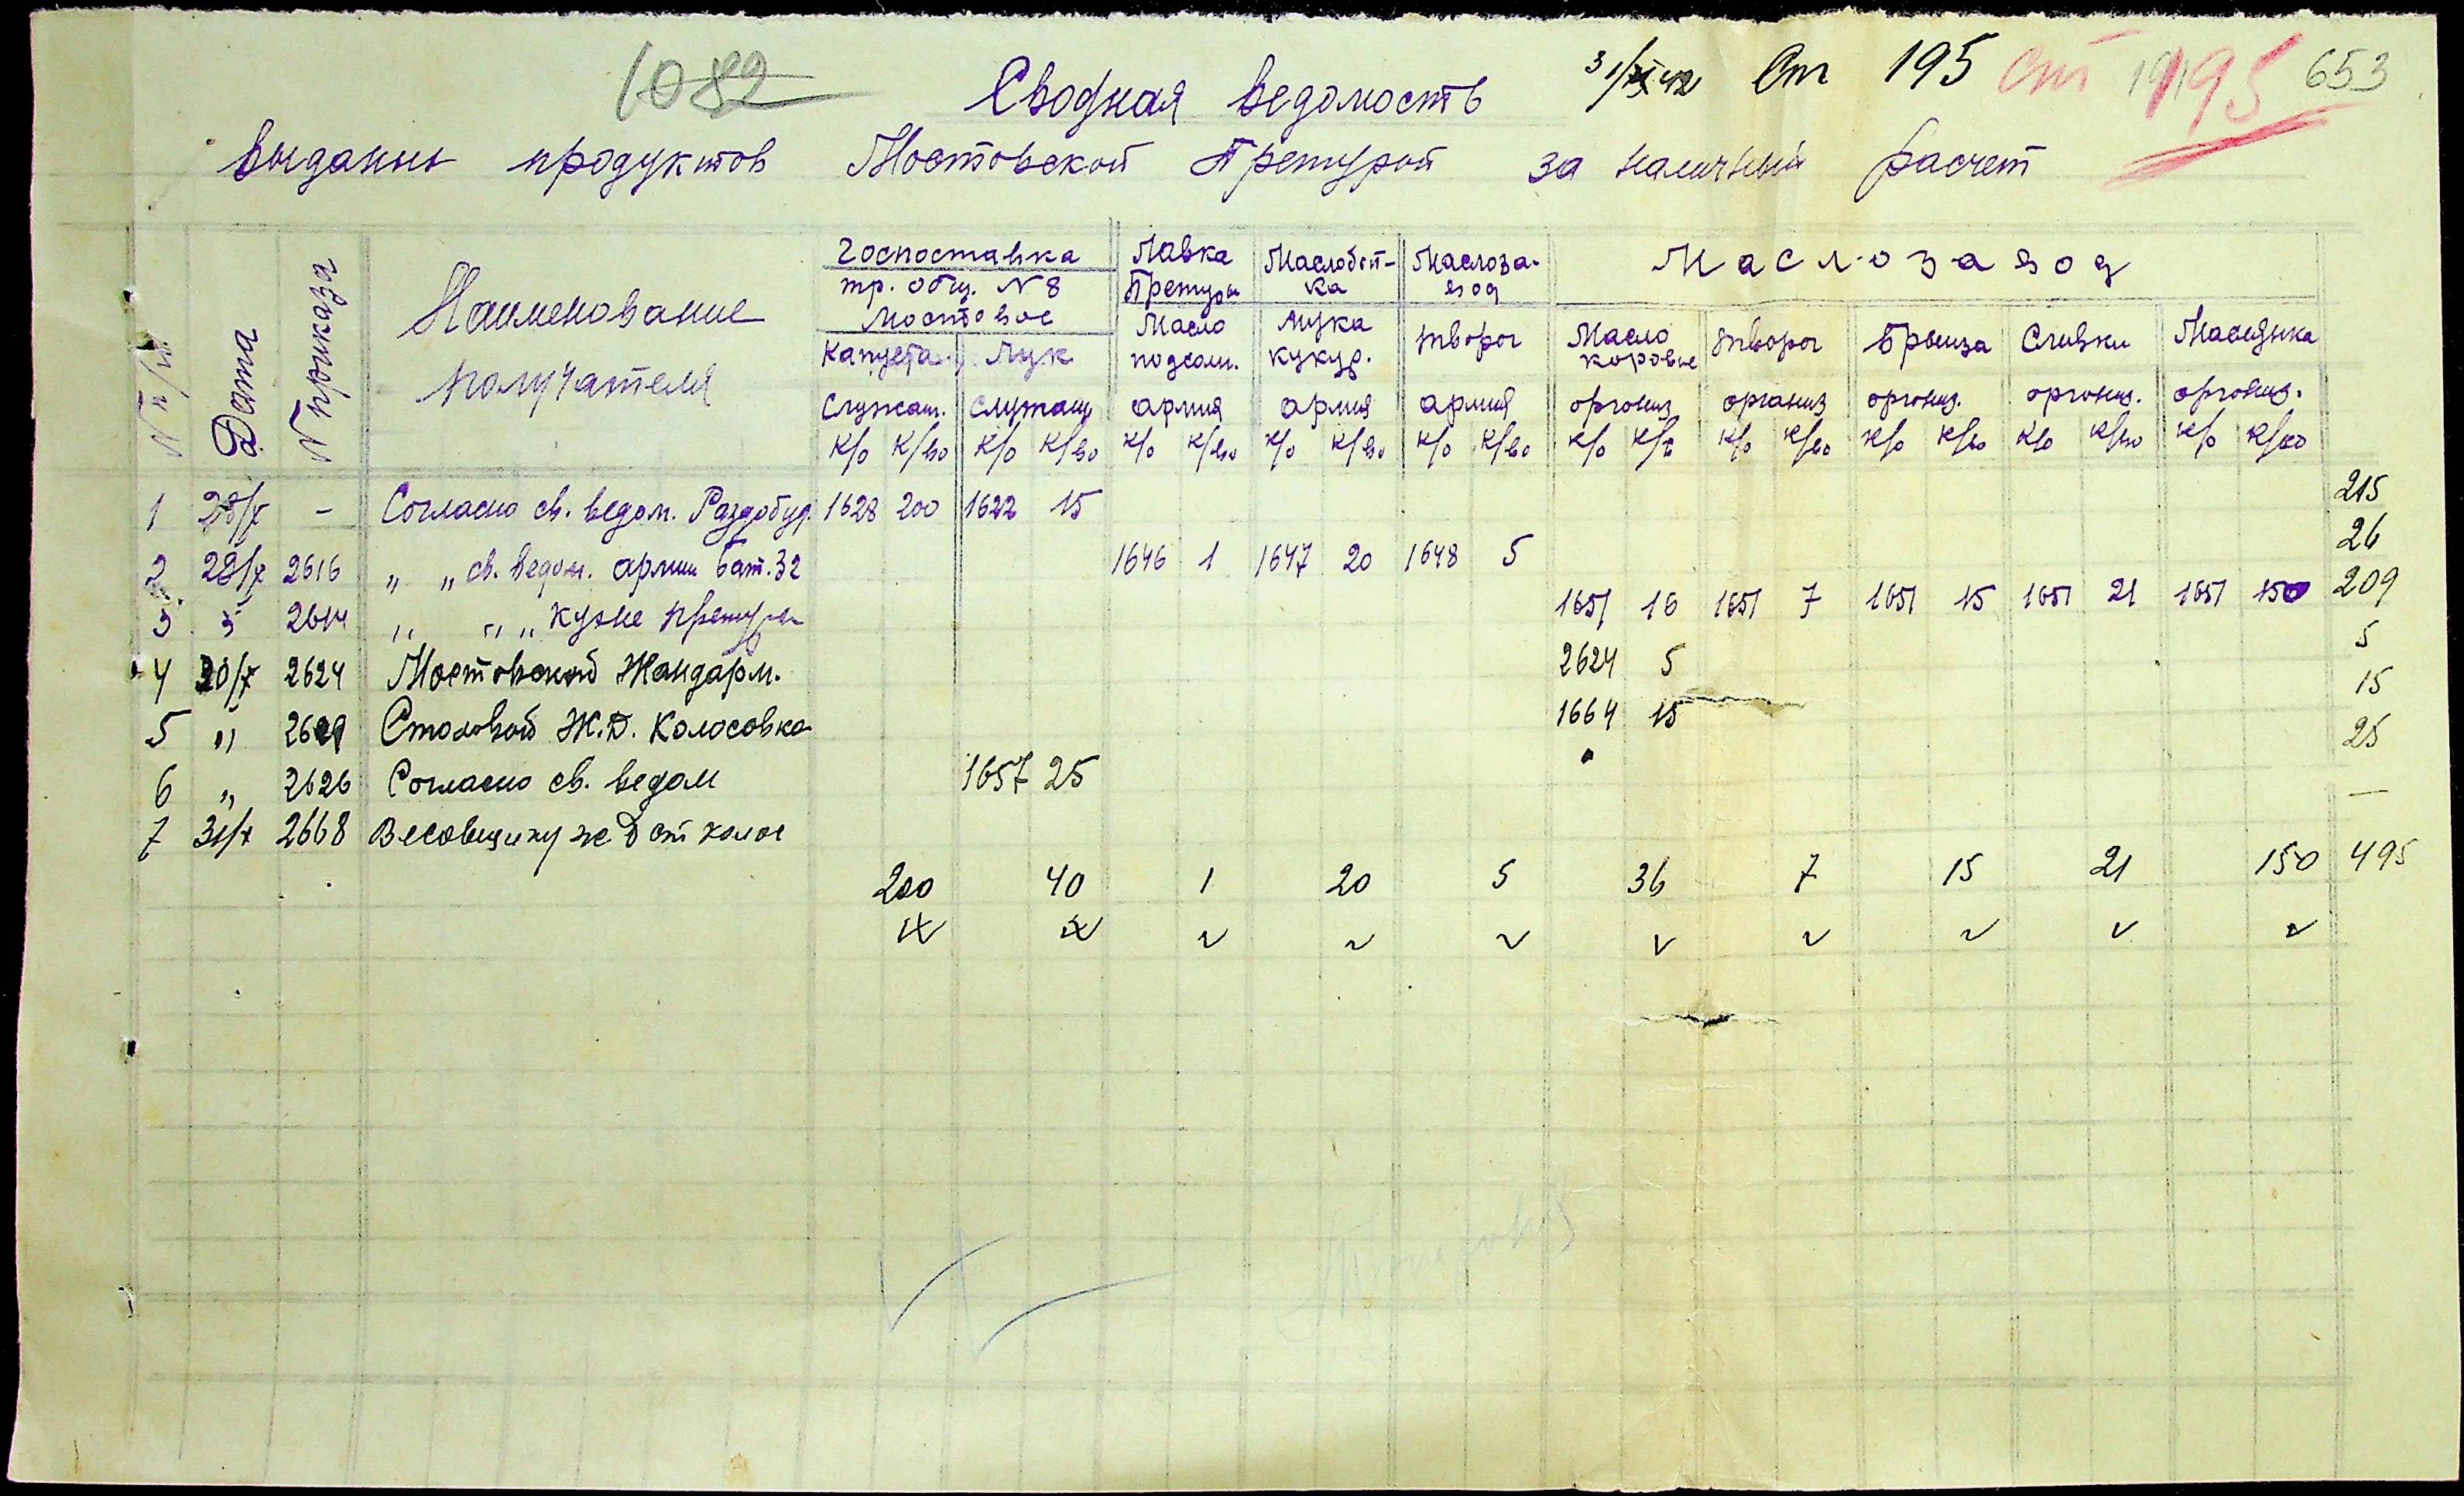 1082
31/X 42 Ст 195 Ст 195 653
Сводная ведомость
выданных продуктов Мостовской Претурой за наличный расчет
N п/п Дата N приказа Наименование получателя
Госпоставка Лавка Маслобой- Маслоза- Маслозавод
тр. общ. N 8 Претуры ка вод
Мостовое Масло Мука творог Масло творог Брынза Сливки Маслянка
Капуста Лук подсолн. кукур. коровье
Служащ. Служащ. армия армия армия организ организ организ. организ. организ.
К/о К/во К/о К/во К/о К/во К/о К/во К/о К/во К/о К/в К/о К/во К/о К/во К/о К/во К/о К/во
1 28/X - Согласно св. ведом. Раздобуд. 1628 200 1622 15 215
2 28/X 2616 " " св. ведом. армии Бат. 32 1646 1 1647 20 1648 5 26
3 " 2614 " " " Кухне претуры 1651 16 1651 7 1651 15 1651 21 1651 150 209
4 30/X 2624 Мостовской Жандарм. 2624 5 5
5 " Столовой Ж.Д. Колосовка 1664 15 15
6 " 2626 Согласно св. ведом 1657 25 25
7 31/X 2668 Весовщику ж Д ст колос —
200 40 1 20 5 36 7 15 21 150 495